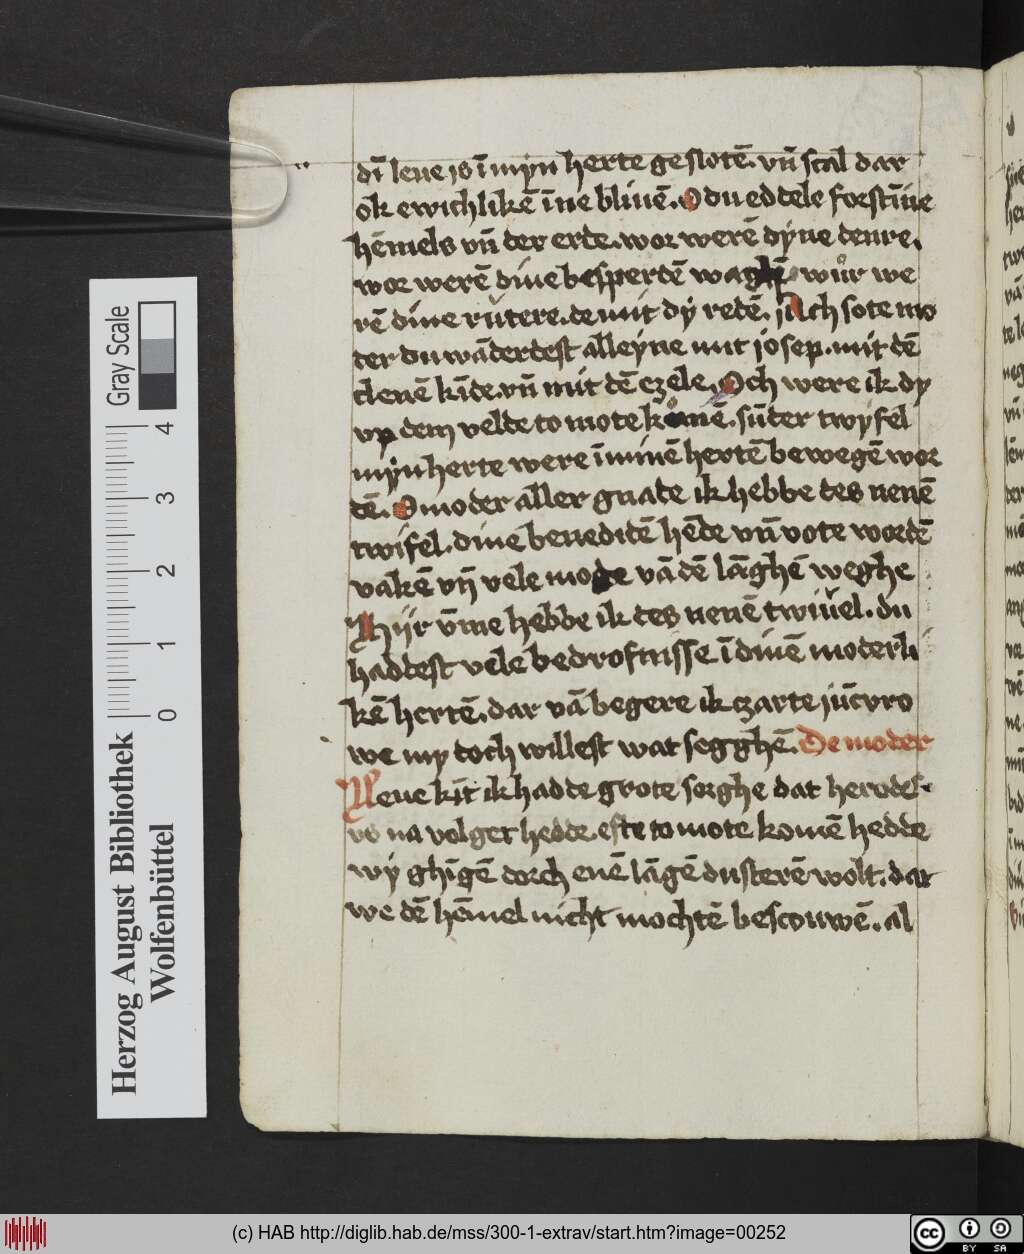 dī leue js ī myn herte geslotē. vn̄ scal dar
ok ewichlikē īne bliuē. O du eddele forstīne
hēmels vn̄ der erde. wor werē dyne denre.
wor werē dine besperdē waghē wur we
rē dine rutere. de mit dy redē. Ach sote mo
der du wāderdest alleyne mit josep. mit dē
clenē kīde. vn̄ mit dē ezele. Och were ik dy
vp dem velde to mote komē. sūder twyfel
myn herte were ī minē hertē bewegē wor
dē. O moder aller gnade ik hebbe des nenē
twifel. dine benedidē hēde vn̄ vote wordē
vakē vn̄ vele mode vā dē lāghē weghe
Hijr v̄me hebbe ik des nenē twiuel. du
haddest vele bedrofnisse ī dinē moderli
kē hertē. dar vā begere ik czarte jūcvro
we my doch willest wat segghē. De moder
Leue kīt ik hadde grote sorghe dat herodes
vs na volget hedde. efte to mote komē hedde
wy ghīgē dorch enē lāgē dusterē wolt. dat
we dē hēmel nicht mochtē bescouwē. al
Gray Scale
0 1 2 3 4
Herzog August Bibliothek
Wolfenbüttel
(c) HAB http://diglib.hab.de/mss/300-1-extrav/start.htm?image=00252
cc BY SA